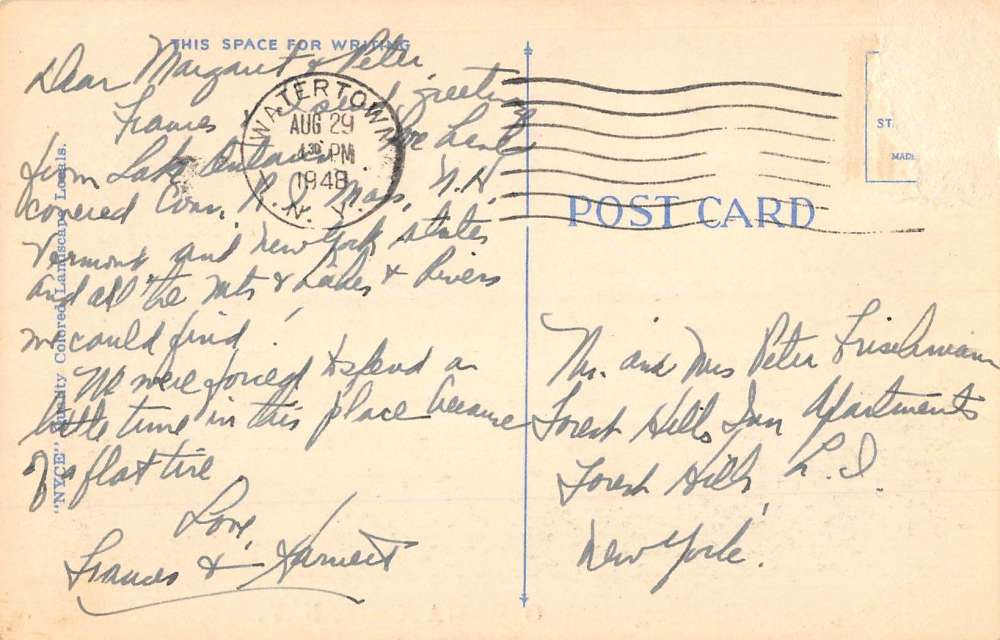 THIS SPACE FOR WRITING
Dear Margaret & Peter
Frances & I send greetings
from Lake Ontario. We have
covered Conn, R.I, Mass, N.H.
Vermont and New York states
and all the Mts & Lakes & Rivers
we could find.
We were forced to spend a
little time in this place because
of a flat tire
Love,
Frances &
"NYCE" Quality Colored Landscape Locals.
WATERTOWN
AUG 29
4 30 PM
1948
N. Y.
POST CARD
ST
MADE
Mr. and Mrs Peter
Forest Hills Inn Apartments
Forest Hills, L. I.
New York.